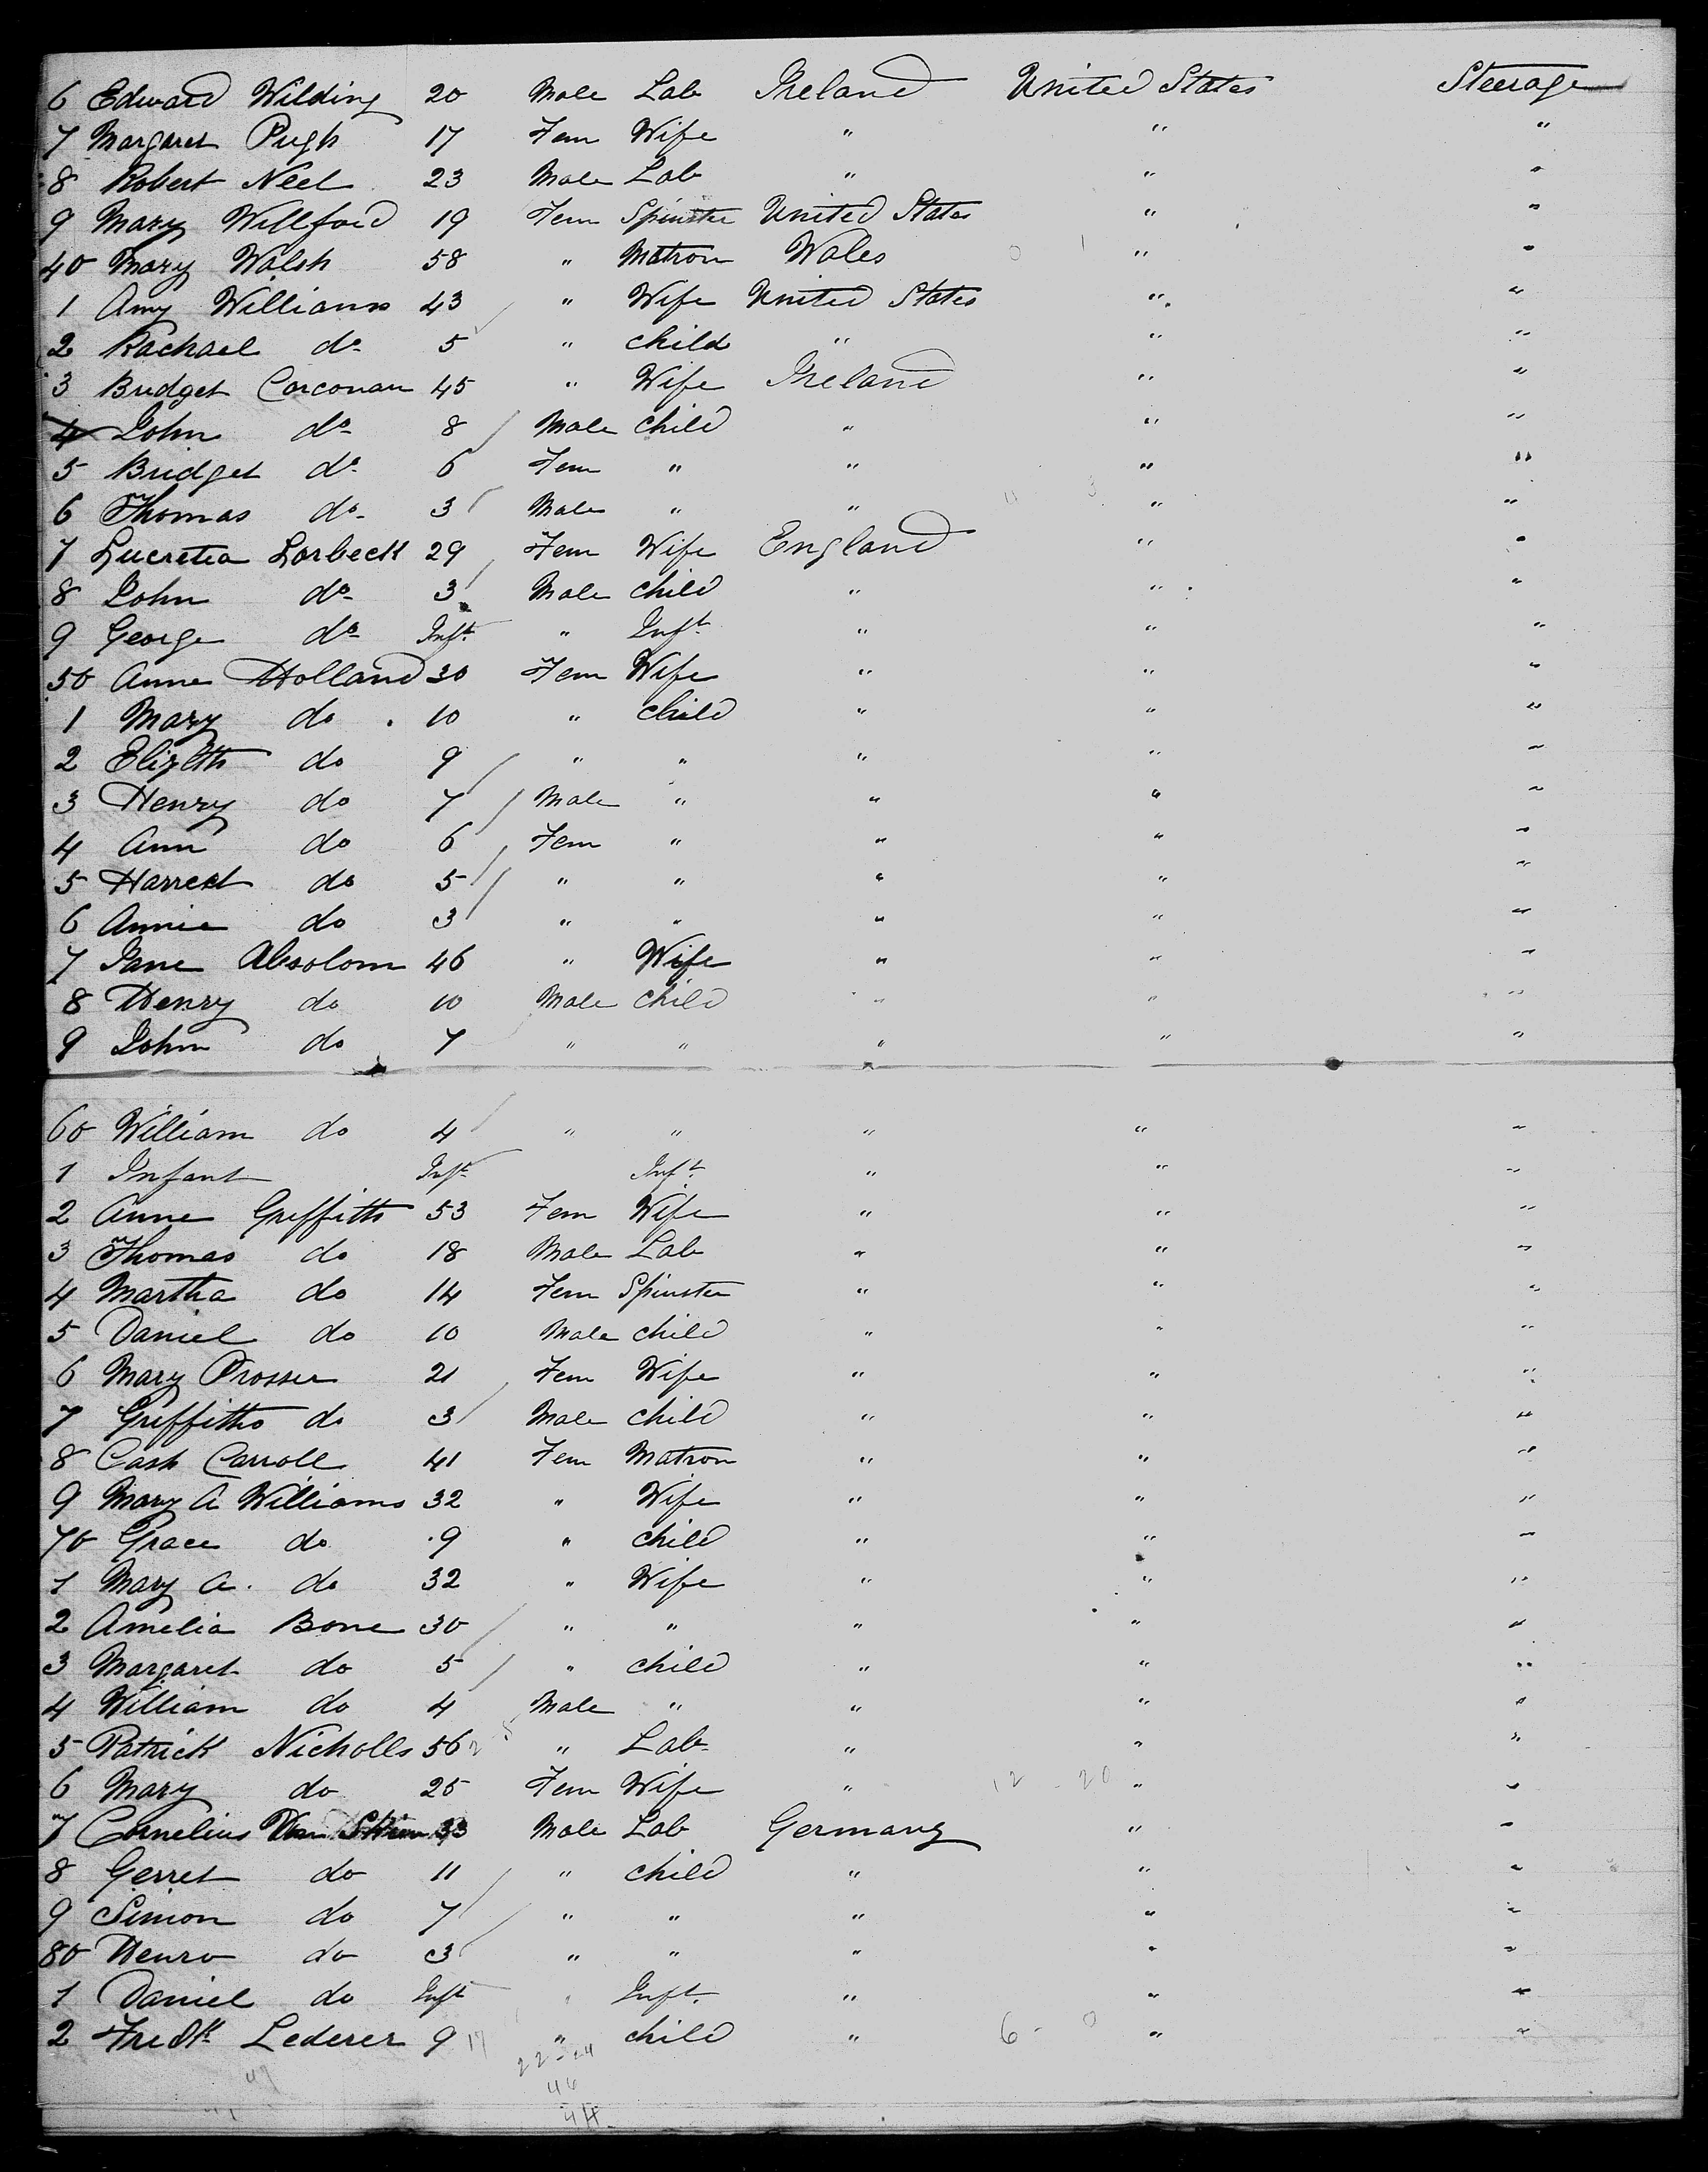 6 Edward Wilding 20 Male Lab Ireland United States Steerage
7 Margaret Pugh 17 Fem Wife " " "
8 Robert Neel 23 Male Lab " " "
9 Mary Willford 19 Fem Spinster United States " "
40 Mary Walsh 58 " Matron Wales 0 1 " "
1 Amy Williams 43 " Wife United States " "
2 Rachael do 5 " child " " "
3 Bridget Corconan 45 " Wife Ireland " "
4 John do 8 Male child " " "
5 Bridget do 6 Fem " " " "
6 Thomas do 3 Male " " 11 3 " "
7 Lucretia Lorbeck 29 Fem Wife England " "
8 John do 3 Male child " " "
9 George do Inft " Inft " " "
50 Anne Holland 30 Fem Wife " " "
1 Mary do 10 " child " " "
2 Elizbth do 9 " " " " "
3 Henry do 7 Male " " " "
4 Ann do 6 Fem " " " "
5 Harriet do 5 " " " " "
6 Annie do 3 " " " " "
7 Jane Absolom 46 " Wife " " "
8 Henry do 10 Male child " " "
9 John do 7 " " " " "
60 William do 4 " " " " "
1 Infant Inft Inft " " "
2 Anne Griffitts 53 Fem Wife " " "
3 Thomas do 18 Male Lab " " "
4 Martha do 14 Fem Spinster " " "
5 Daniel do 10 Male child " " "
6 Mary Prosser 21 Fem Wife " " "
7 Griffiths do 3 Male child " " "
8 Cash Carroll 41 Fem Matron " " "
9 Mary A Williams 32 " Wife " " "
70 Grace do 9 " child " " "
1 Mary A. do 32 " Wife " " "
2 Amelia Bone 30 " " " " "
3 Margaret do 5 " child " " "
4 William do 4 Male " " " "
5 Patrick Nicholls 56 " Lab " " "
6 Mary do 25 Fem Wife " 12 - 20 " "
7 Cornelius Van 33 Male Lab Germany " "
8 Gerret do 11 " child " " "
9 Simon do 7 " " " " "
80 Henro do 3 " " " " "
1 Daniel do Inft " Inft. " " "
2 Fredk Lederer 9 17 " child " 6 - 0 " "
22 24
46